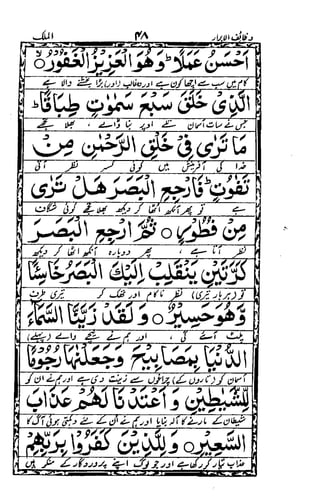 وظائف الابرار ۴۸ الملک
اَحْسَنُ عَمَلًا ؕ وَهُوَ الْعَزِيْزُ الْغَفُوْرُ ۝
کام میں سب سے اچھا کون ہے اور غالب (اور) بڑا بخشنے والا ہے
الَّذِیْ خَلَقَ سَبْعَ سَمٰوٰتٍ طِبَاقًا ؕ
جس نے سات آسمان تلے اوپر بنا ڈالے، بھلا تجھے
مَا تَرٰی فِیْ خَلْقِ الرَّحْمٰنِ مِنْ
خدا کی آفرینش میں کوئی کسر نظر آتی
تَفٰوُتٍ ؕ فَارْجِعِ الْبَصَرَ هَلْ تَرٰی
ہے تو پھر آنکھ اٹھا کر دیکھ بھلا تجھے کوئی شگاف
مِنْ فُطُوْرٍ ۝ ثُمَّ ارْجِعِ الْبَصَرَ
نظر آتا ہے، پھر دوبارہ آنکھ اٹھا کر دیکھ
كَرَّتَيْنِ يَنْقَلِبْ اِلَيْكَ الْبَصَرُ خَاسِئًا
تو (ہر بار تیری) نظر ناکام اور تھک کر تیری طرف
وَّهُوَ حَسِيْرٌ ۝ وَلَقَدْ زَيَّنَّا السَّمَآءَ
پلٹ آئے گی، اور ہم نے نیچے والے (پہلے)
الدُّنْيَا بِمَصَابِيْحَ وَجَعَلْنٰهَا رُجُوْمًا
آسمان کو (تاروں کے) چراغوں سے زینت دی ہے اور ہم نے ان کو
لِّلشَّيٰطِيْنِ وَاَعْتَدْنَا لَهُمْ عَذَابَ
شیطان کے مارنے کا آلہ بنایا اور ہم نے ان کے لئے دہکتی ہوئی آگ کا
السَّعِيْرِ ۝ وَلِلَّذِيْنَ كَفَرُوْا بِرَبِّهِمْ
عذاب تیار کر رکھا ہے اور جو لوگ اپنے پروردگار کے منکر ہیں